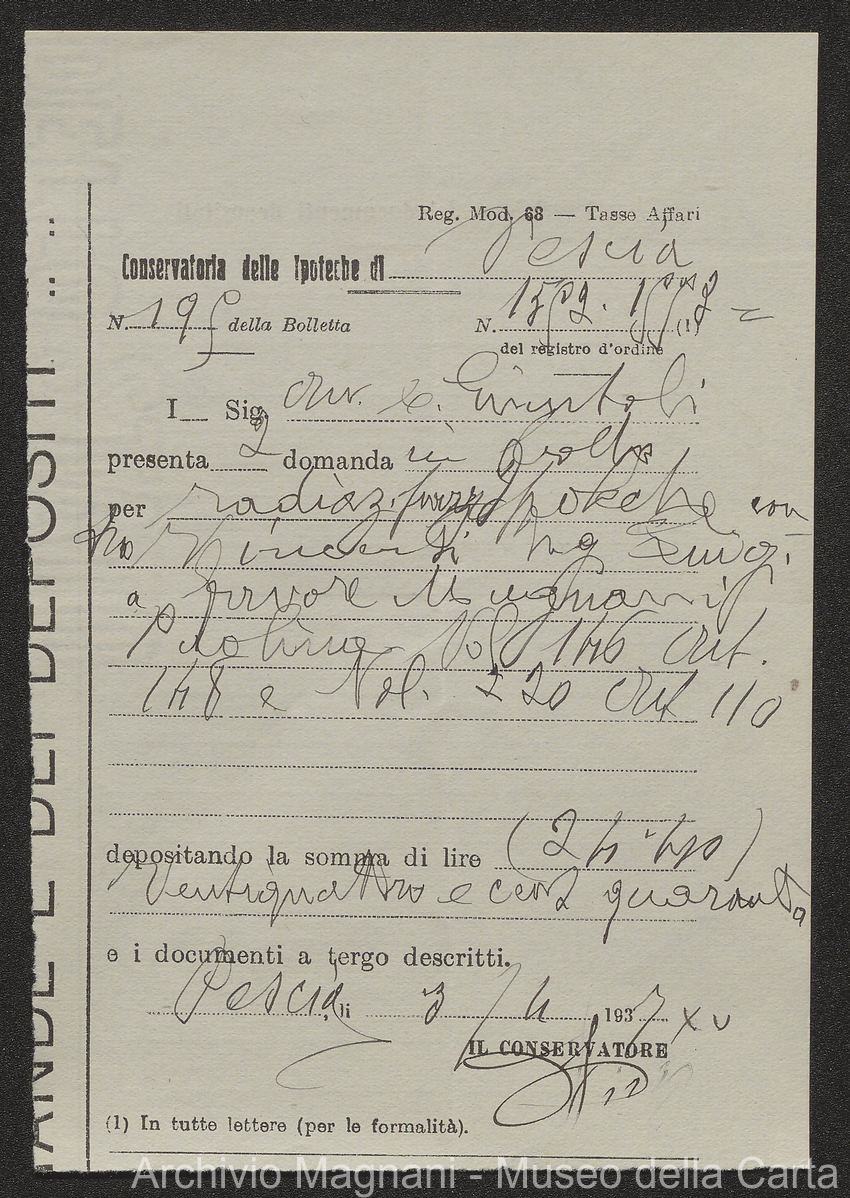 Reg. Mod. 68 — Tasse Affari
Conservatoria delle Ipoteche di Pescia
N. 195 della Bolletta N. (1)
del registro d'ordine
I Sig. Avv. C.
presenta 2 domanda in
per radiaz. Ipoteche con
tro Vincenti Ing
a favore Magnani
Paolina Vol 146 Art.
148 e Vol. 220 Art 110
depositando la somma di lire (24,40)
Ventiquattro e cent quaranta
e i documenti a tergo descritti.
Pescia, li 3/4 1937 XV
IL CONSERVATORE
(1) In tutte lettere (per le formalità).
ANDE E DEI DEPOSITI
Archivio Magnani - Museo della Carta